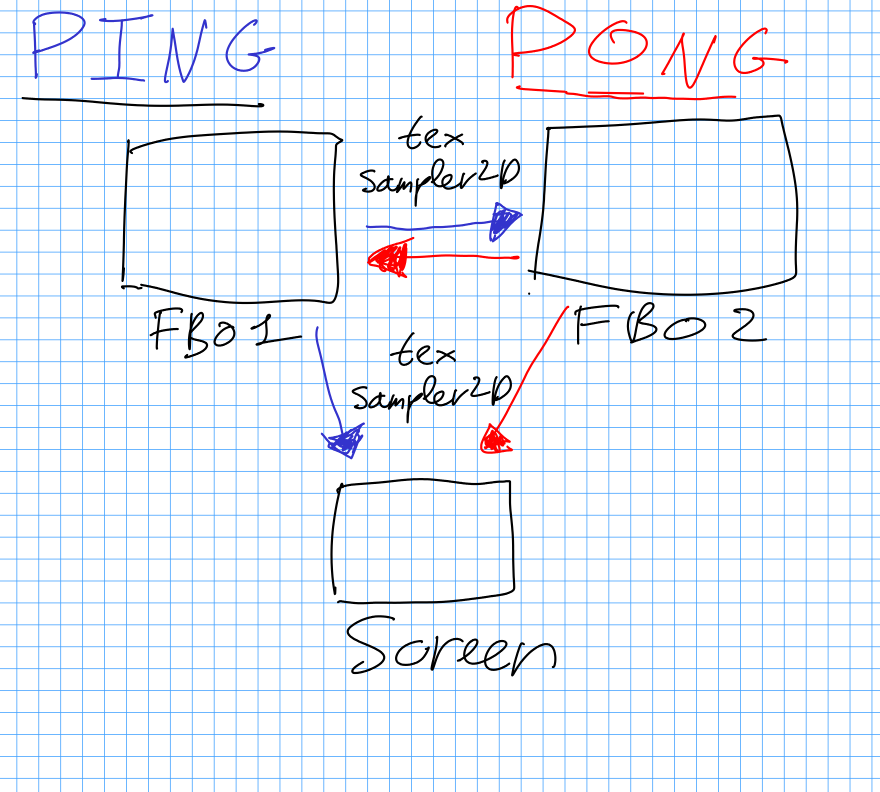 PING
PONG
tex
sampler2D
FBO1
FBO2
tex
sampler2D
Screen